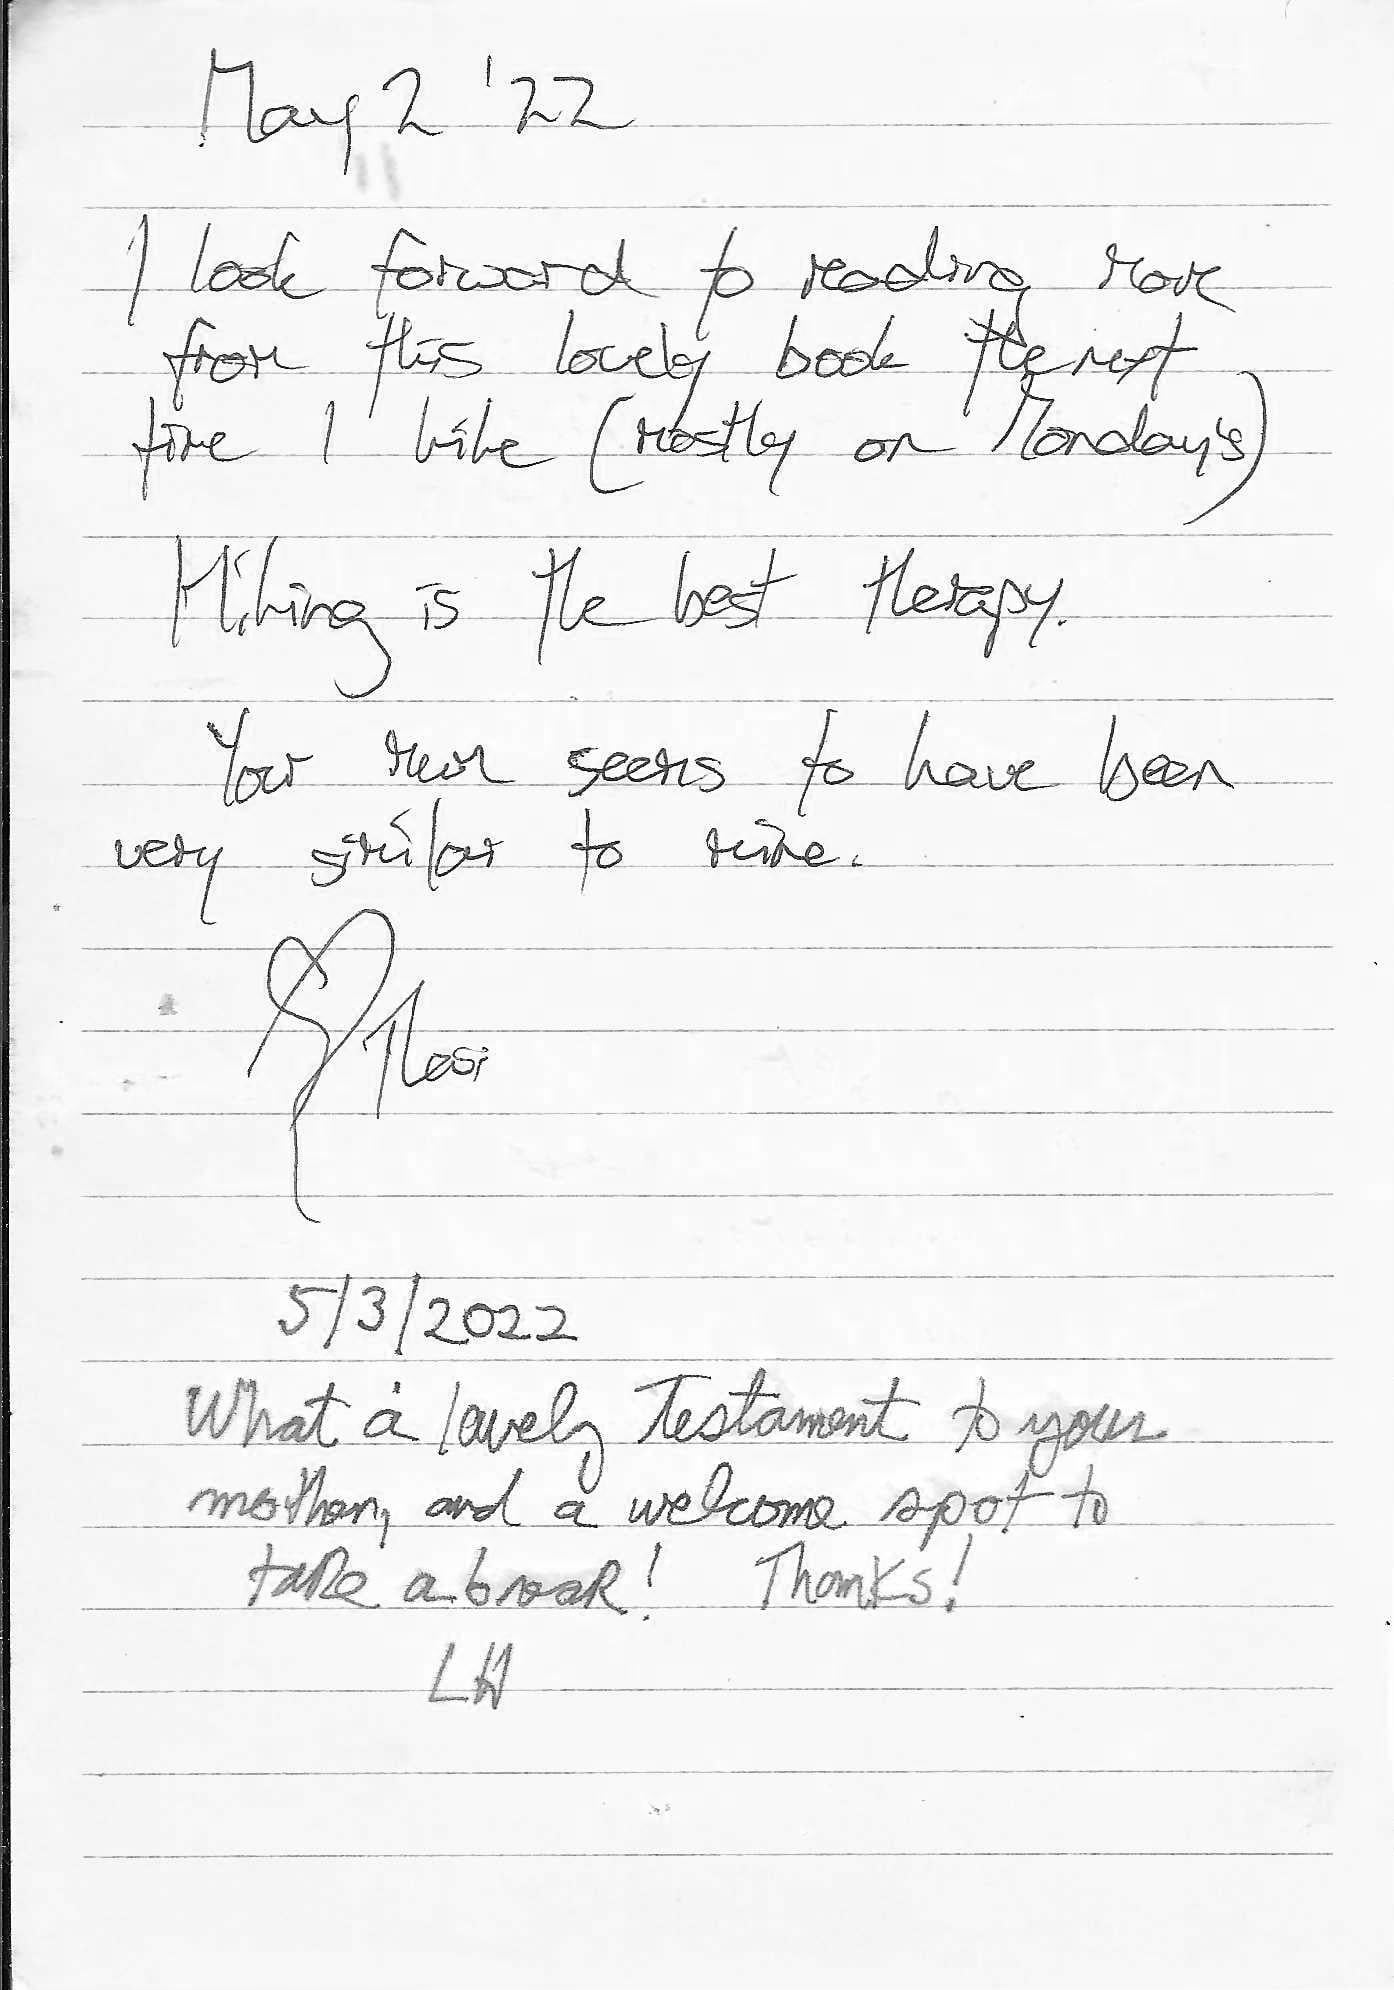 May 2 '22
I look forward to reading more
from this lovely book the next
time I hike (mostly on Monday's)
Hiking is the best therapy.
Your mum seems to have been
very similar to mine.
5/3/2022
What a lovely Testament to your
mother, and a welcome spot to
take a break! Thanks!
LH